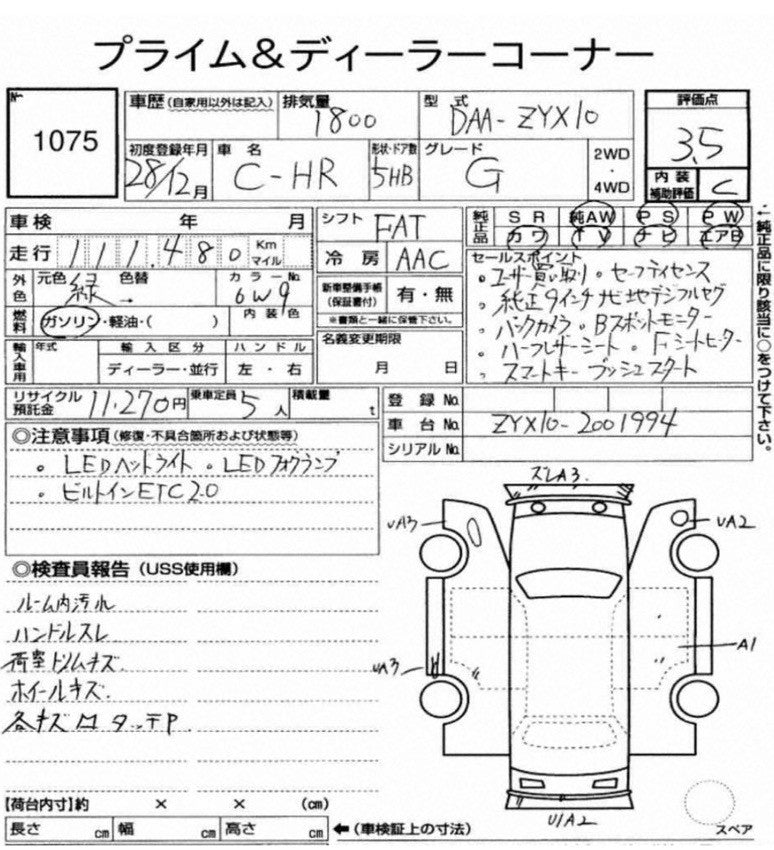 プライム＆ディーラーコーナー
№
1075
車歴(自家用以外は記入)
排気量
1800
型 式
DAA-ZYX10
評価点
3.5
初度登録年月
28/12月
車 名
C-HR
形状・ドア数
5HB
グレード
G
2WD
・
4WD
内 装
補助評価
C
車検 年 月
シフト
FAT
純正品
SR 純AW PS PW
カワ TV ナビ エアB
←純正品に限り該当に○をつけて下さい。
走行 111.480 Km マイル
冷房
AAC
外色
元色 緑 色替
カラーNo.
6W9
新車整備手帳
(保証書付)
有・無
※書類と一緒に保管下さい。
燃料
ガソリン・軽油・( )
内装色
セールスポイント
・ユーザー買い取り ・セーフティセンス
・純正9インチナビ地デジフルセグ
・バックカメラ ・Bスポットモニター
・ハーフレザーシート ・Fシートヒーター
・スマートキー プッシュスタート
輸入車用
年式
輸入区分
ディーラー・並行
ハンドル
左・右
名義変更期限
月 日
リサイクル
預託金
11.270円
乗車定員
5人
積載量
t
登録 No.
車台 No.
ZYX10-2001994
シリアル No.
◎注意事項(修復・不具合箇所および状態等)
・LEDヘットライト ・LEDフォグランプ
・ビルトインETC2.0
◎検査員報告(USS使用欄)
ルーム内汚れ
ハンドルスレ
荷室トリムキズ
ホイールキズ
各キズ ロ タッチP
スレA3.
UA3
UA2
A1
UA3
U1A2
スペア
【荷台内寸】約 × × (cm)
長さ cm 幅 cm 高さ cm ←(車検証上の寸法)